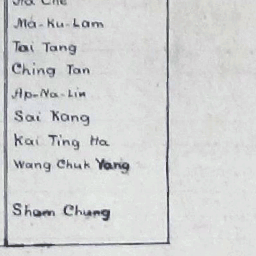 Ma-Ku-Lam
Tai Tang
Ching Tan
Ap-Na-Lin
Sai Kang
Kai Ting Ha
Wang Chuk Yang
Sham Chung